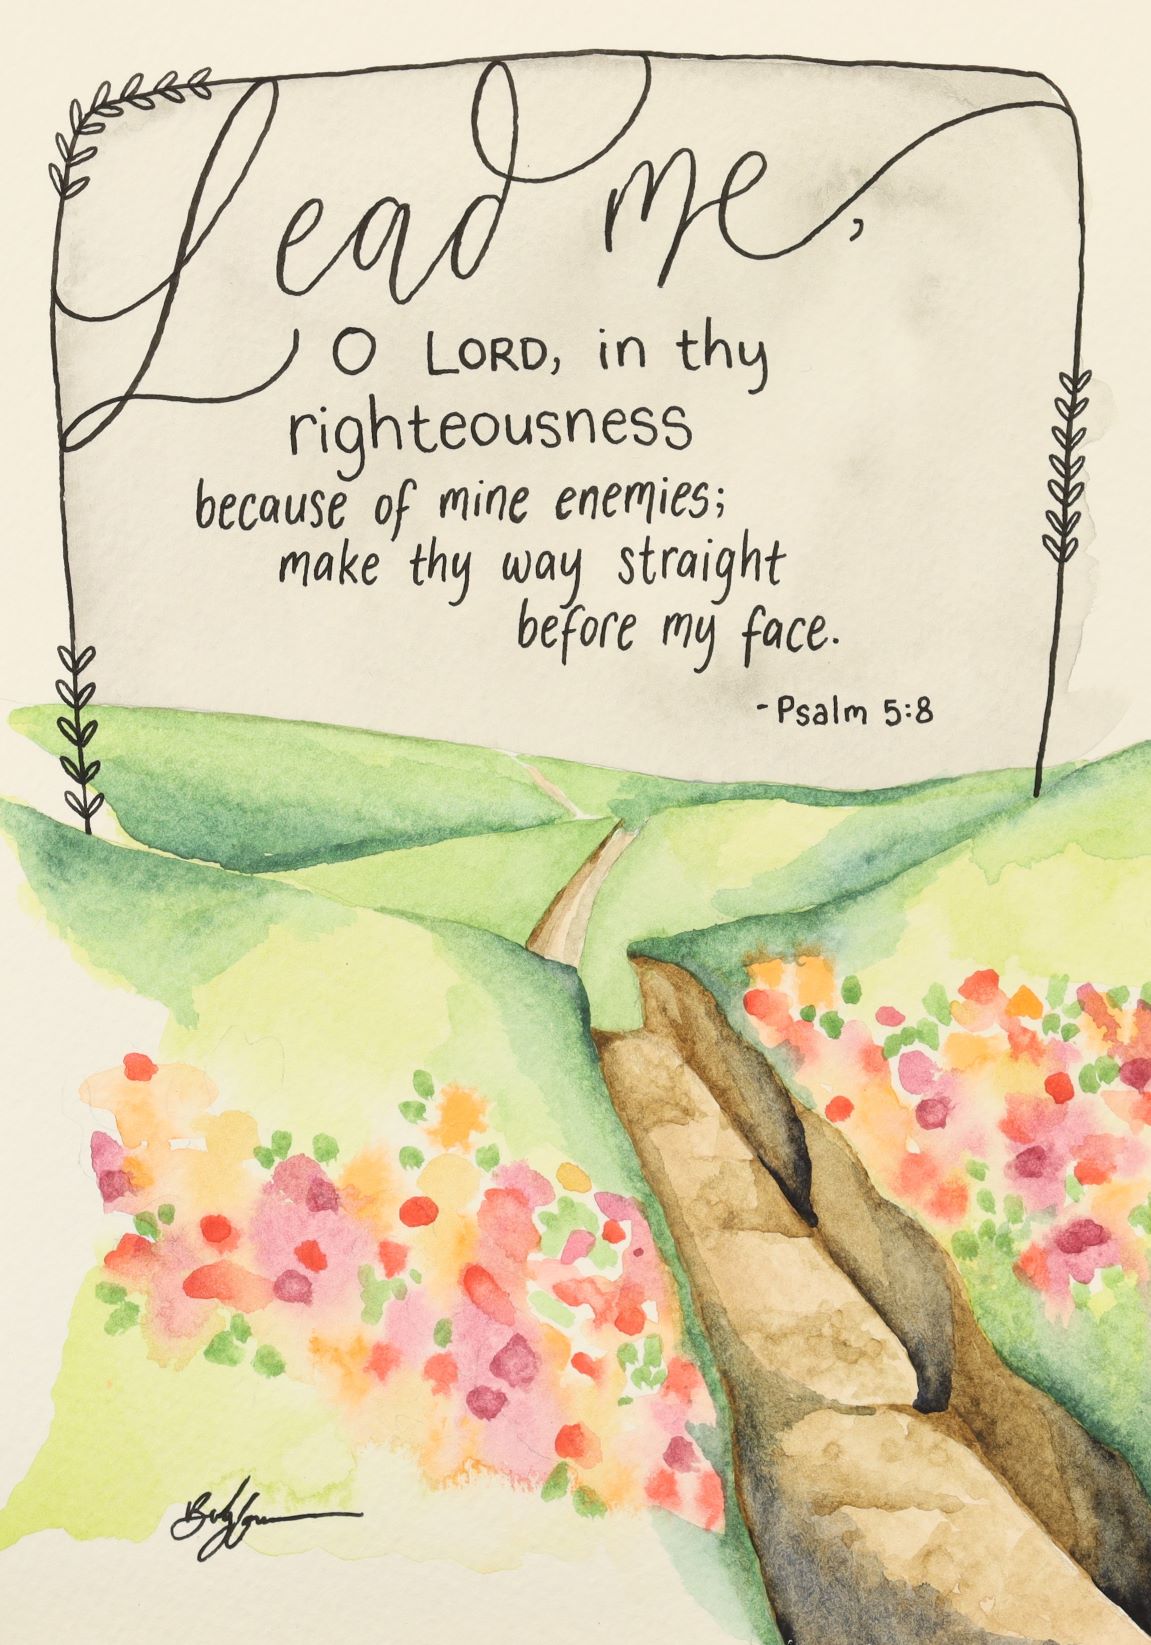 Lead me,
O LORD, in thy
righteousness
because of mine enemies;
make thy way straight
before my face.
-Psalm 5:8